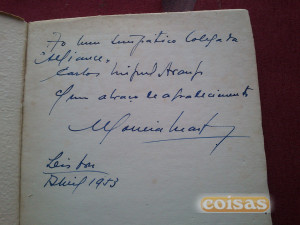 Ao meu simpático Colega da
"Aliança",
Carlos Miguel Araujo
Com um abraço de agradecimento
Lisboa
Abril 1953
coisas